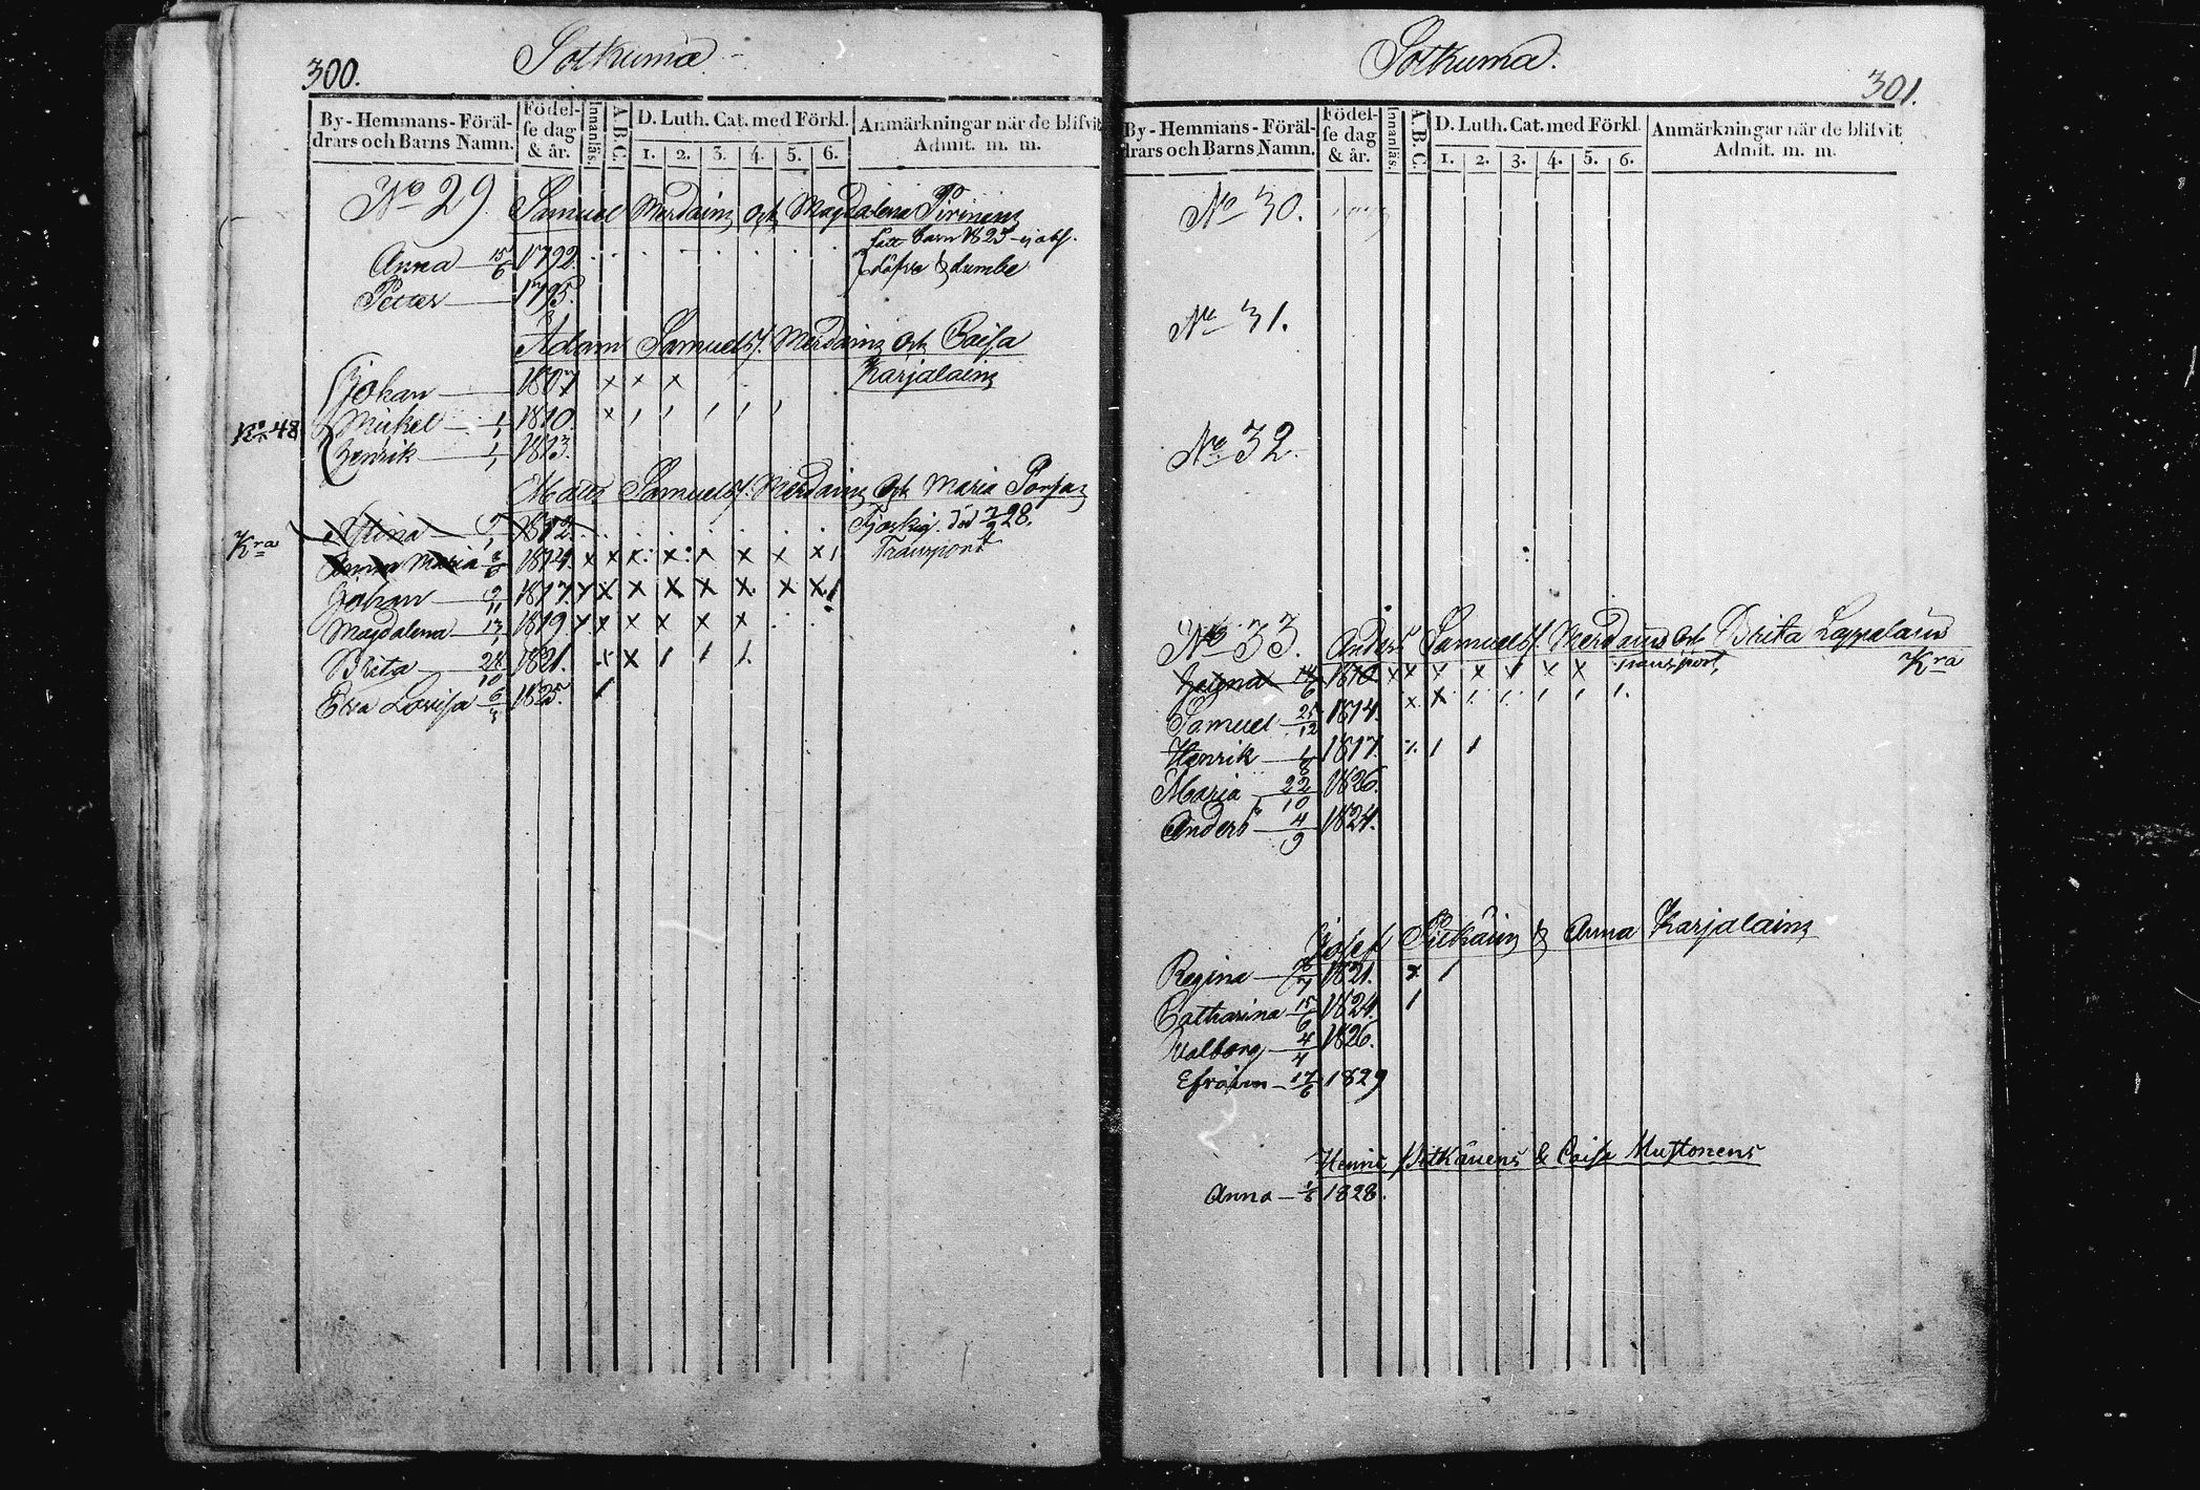 300. Sotkuma
By-Hemmans-Föräl-drars och Barns Namn. Födel-se dag & år. Innanläs. A.B.C. D. Luth. Cat. med Förkl. 1. 2. 3. 4. 5. 6. Anmärkningar när de blifvit Admit. m. m.
No 29. Samuel och Magdalena
fått barn 1825
Anna 15/6 1792. döfve & dumbe
Petter 1795.
Adam Samuels. och Caisa
Karjalain
Johan 1807 x x x
No 48 Mickel 1/1 1810. x
Henrik 1/1 1813.
Matts Samuels. och Maria
Stina 1812. död 28.
Kra Anna Maria 1814. x x x x x x x Transport
Johan 9/11 1817. x x x x x x x x
Magdalena 13/1 1819. x x x x x x
Brita 28/10 1821. x x 1 1 1.
Eva Lovisa 1825. 1
Sotkuma. 301.
By-Hemmans-Föräl-drars och Barns Namn. Födel-se dag & år. Innanläs. A.B.C. D. Luth. Cat. med Förkl. 1. 2. 3. 4. 5. 6. Anmärkningar när de blifvit Admit. m. m.
No 30.
No 31.
No 32.
No 33. Anders Samuels. och Brita Lappalain
1810 x x x x x x Transport, Kra
Samuel 25/12 1814. x x
Henrik 1/8 1817. 1 1
Maria 22/10 1826.
Anders 4/9 1824.
Josef Pitkäin & Anna Karjalain
Regina 1821. x 1
Catharina 15/6 1824. 1
Valborg 4/4 1826.
Efraim 17/6 1829
Henric Pitkänens & Caisa Mustonens
Anna 1828.